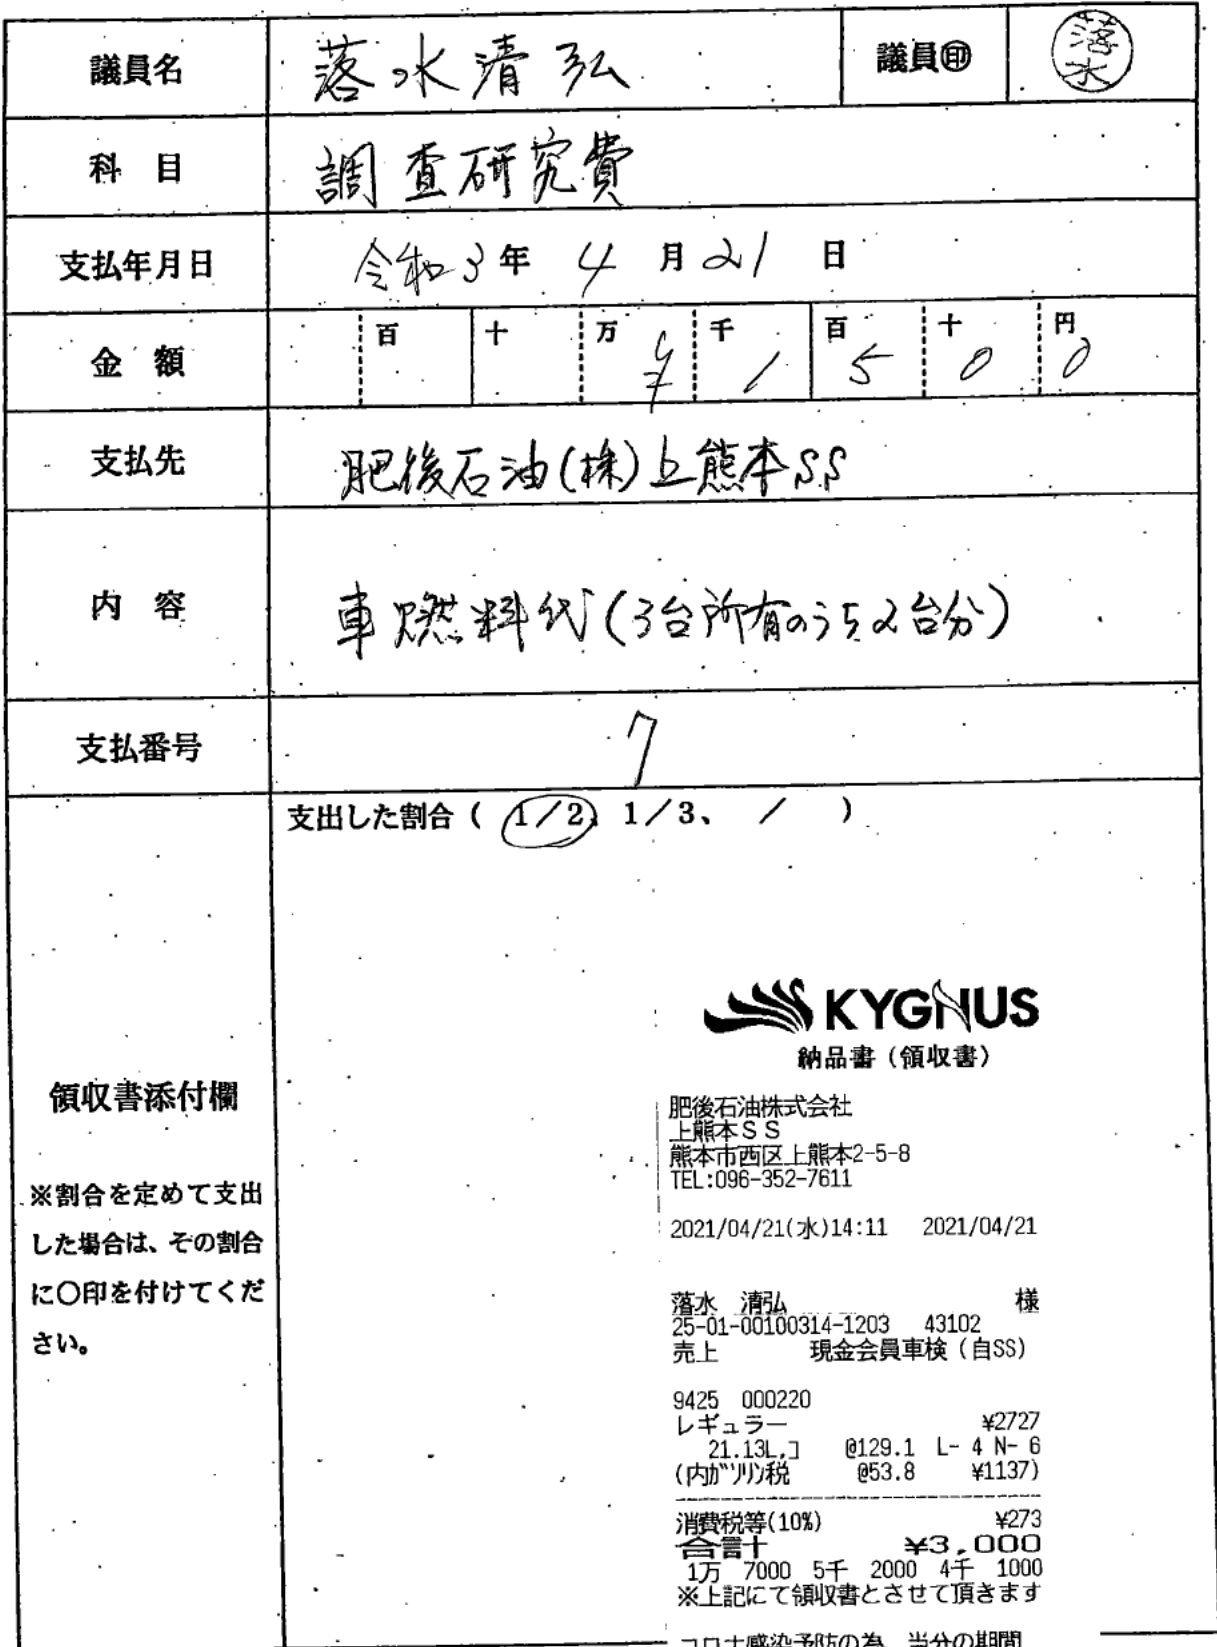 議員名 落水清弘 議員印 落水
科 目 調査研究費
支払年月日 令和3年 4月21日
金 額 百 十 万 ¥ 千 1 百 5 十 0 円 0
支払先 肥後石油(株)上熊本SS
内 容 車燃料代(3台所有のうち2台分)
支払番号 7
支出した割合( 1/2、1/3、 / )
領収書添付欄
※割合を定めて支出
した場合は、その割合
に〇印を付けてくだ
さい。
KYGNUS
納品書(領収書)
肥後石油株式会社
上熊本SS
熊本市西区上熊本2-5-8
TEL:096-352-7611
2021/04/21(水)14:11 2021/04/21
落水 清弘 様
25-01-00100314-1203 43102
売上 現金会員車検(自SS)
9425 000220
レギュラー ¥2727
21.13L,コ @129.1 L- 4 N- 6
(内ガソリン税 @53.8 ¥1137)
消費税等(10%) ¥273
合計 ¥3,000
1万 7000 5千 2000 4千 1000
※上記にて領収書とさせて頂きます
コロナ感染予防の為、当分の期間